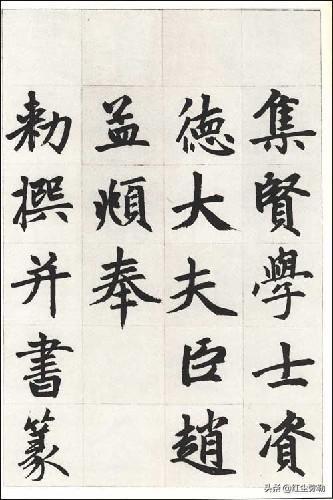 集賢學士資
德大夫臣趙
孟頫奉
勅撰并書篆
头条@红尘弥勒